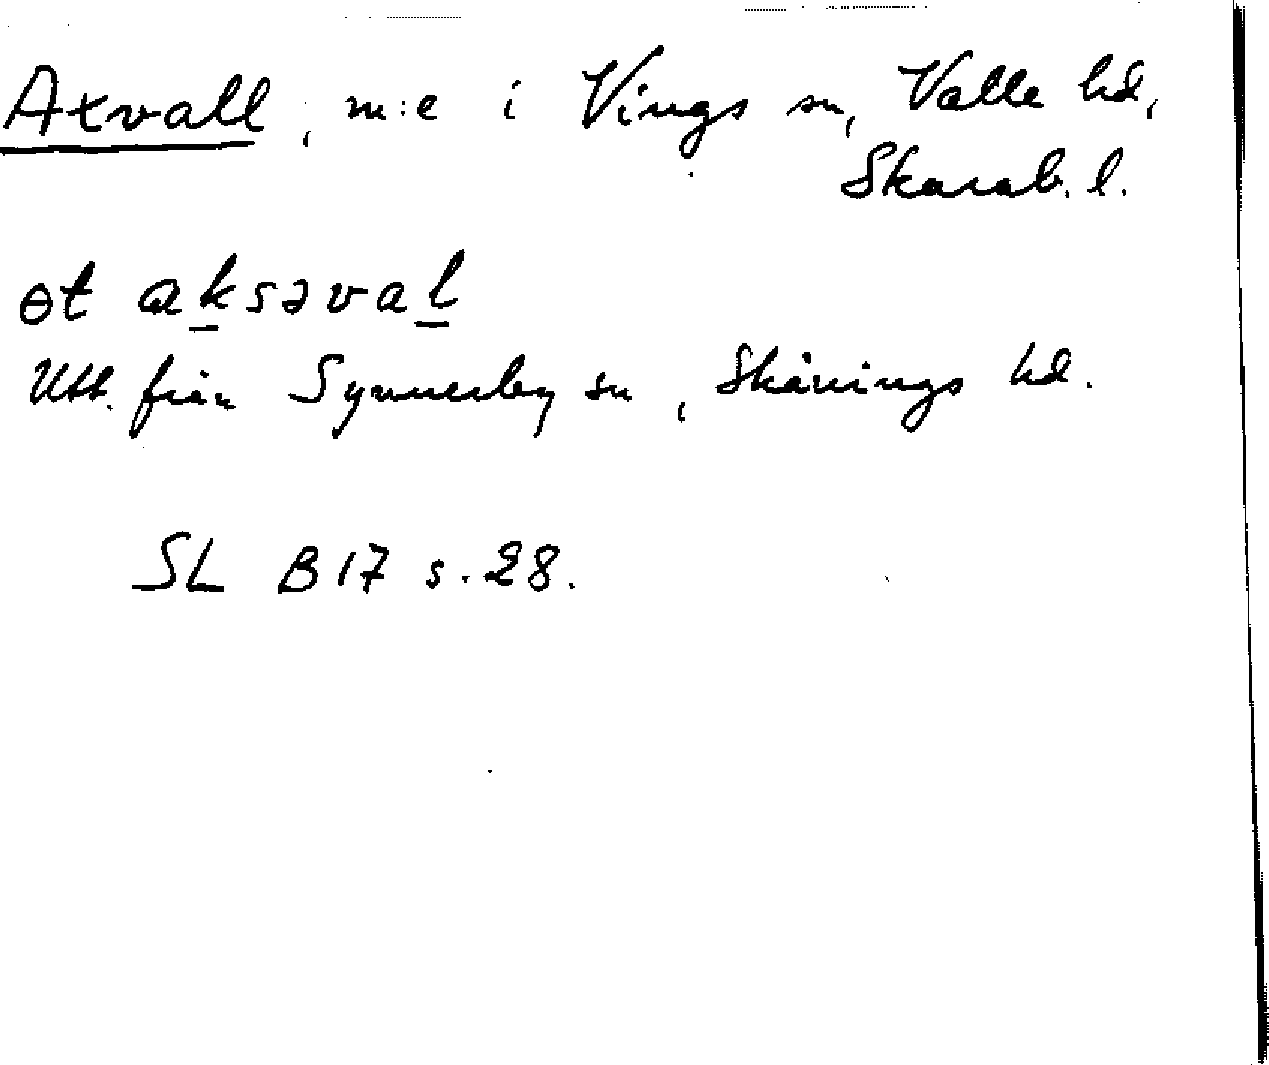 Axvall, m:e i Vings sn, Valle hd,
Skarab. l.
ɵt aksəval
Utt. från Synnerby sn, Skånings hd.
SL B17 s. 28.